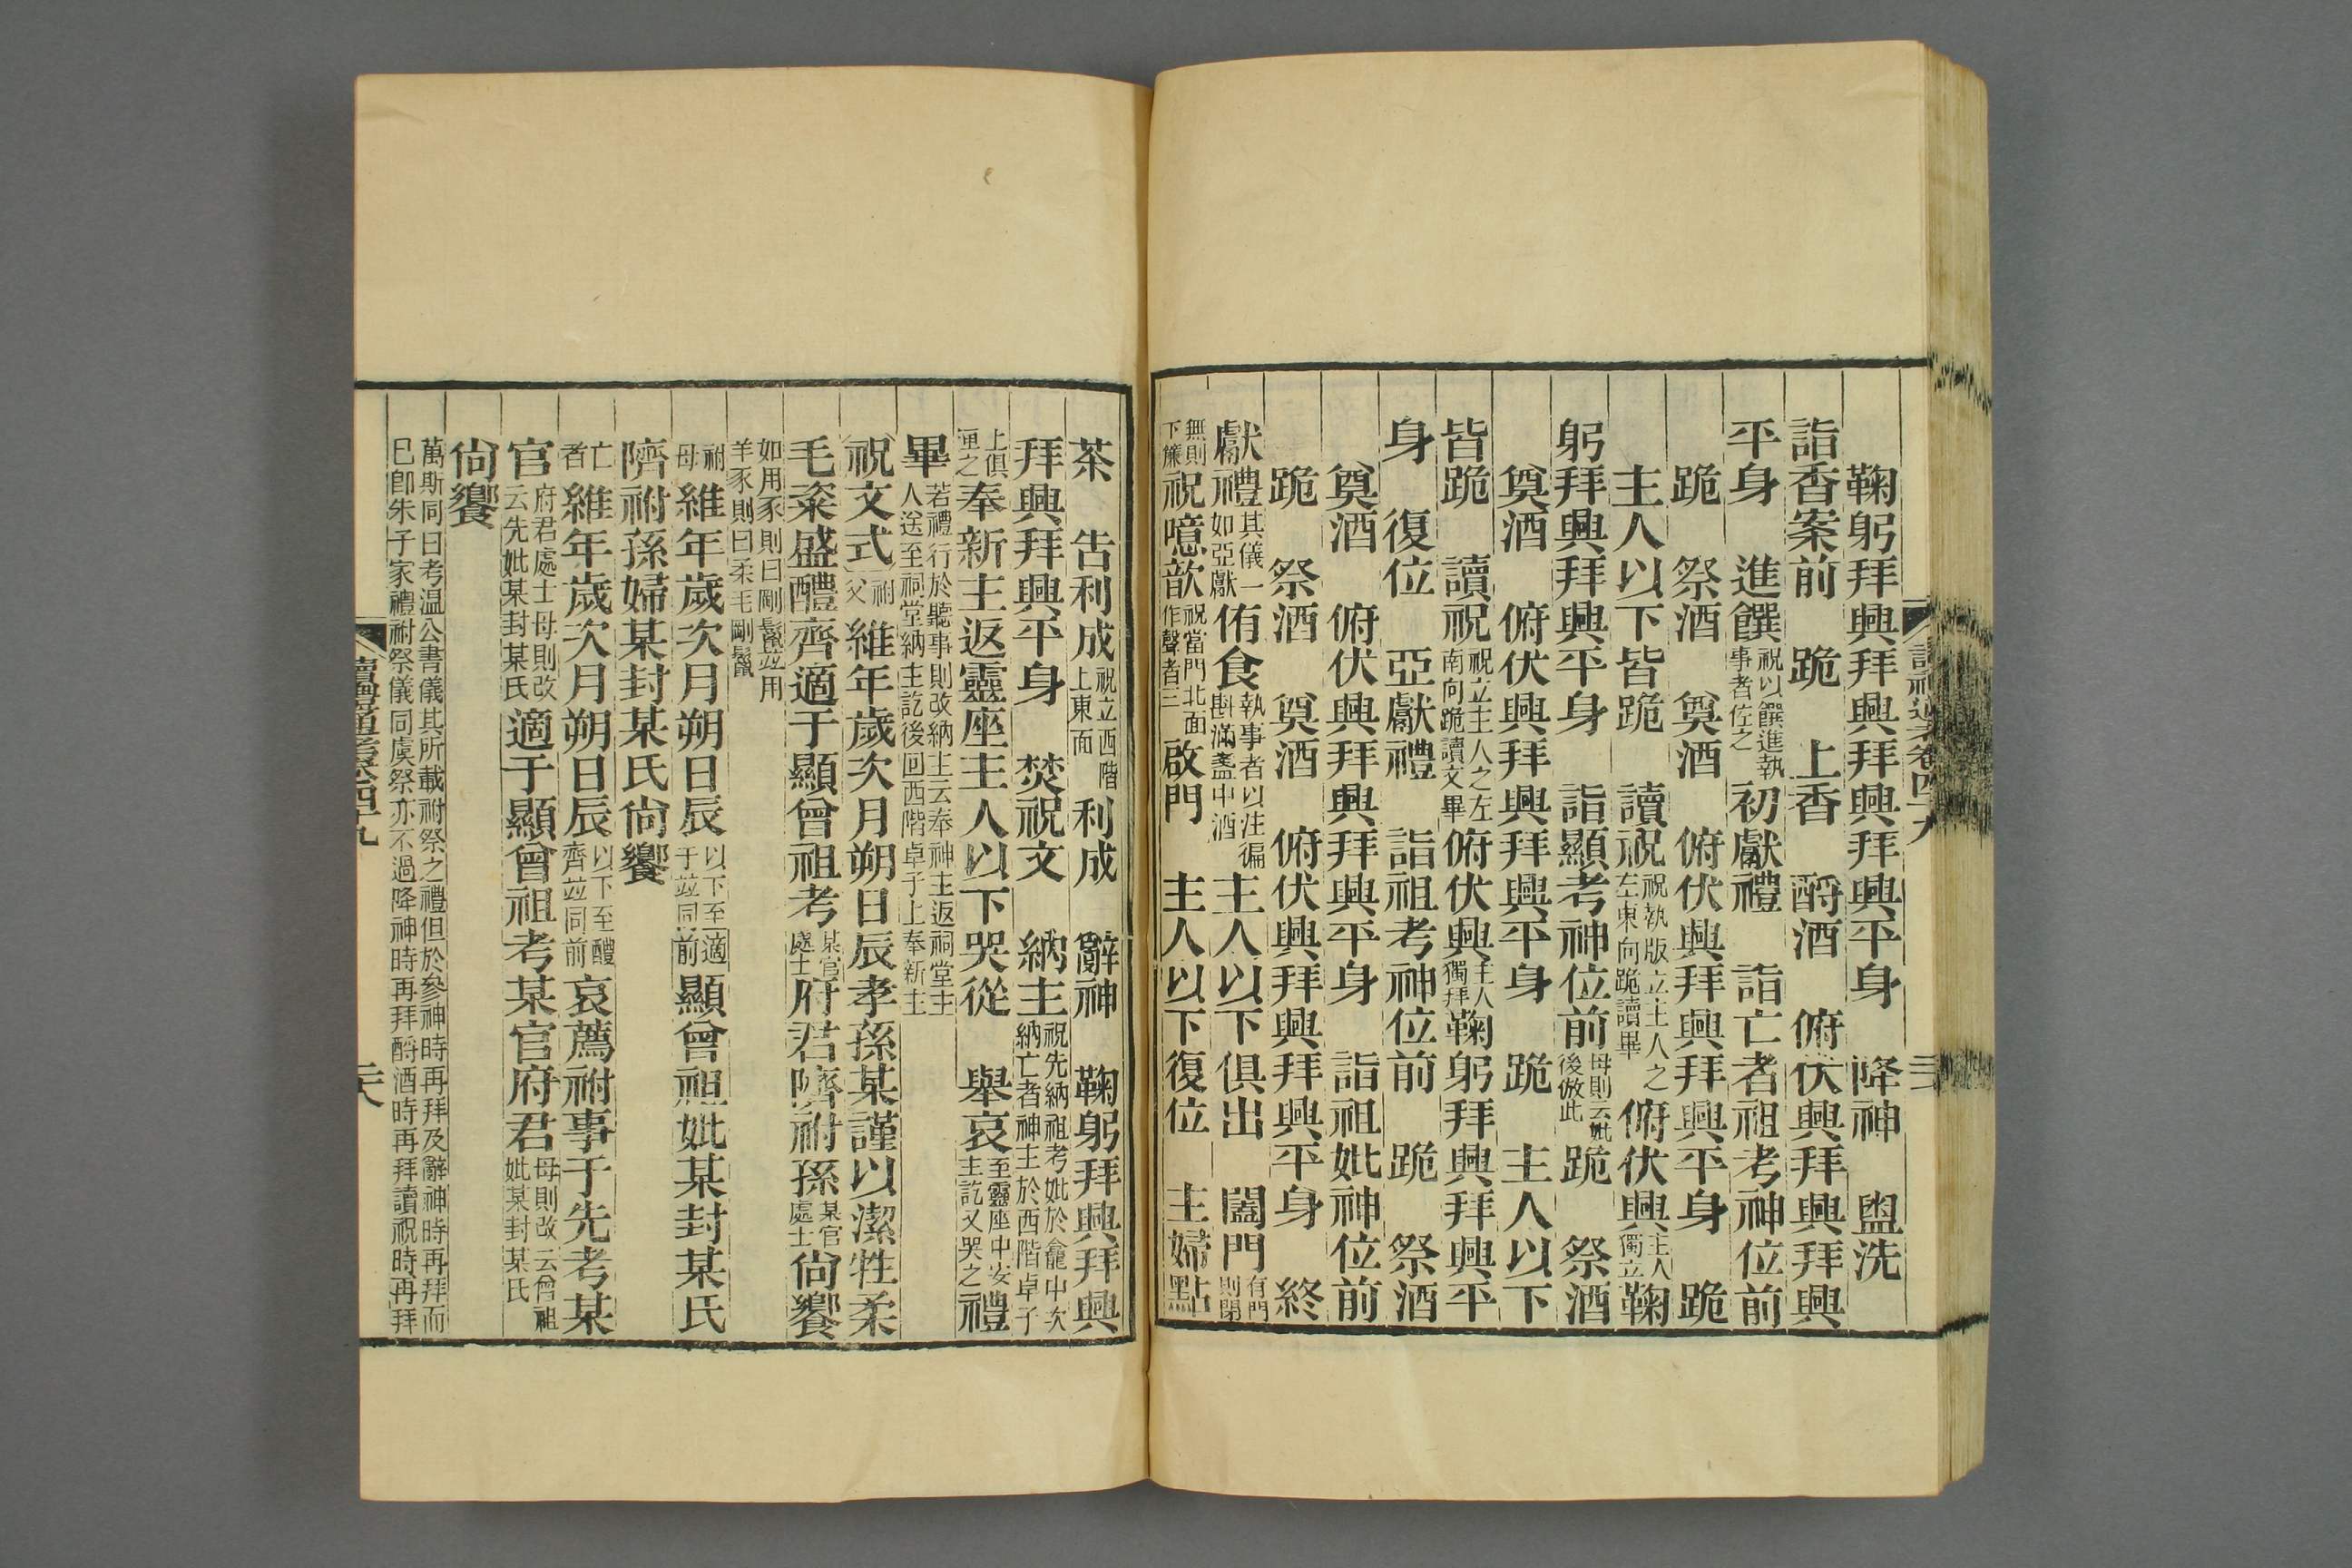 鞠躬拜興拜興拜興拜興平身 降神 盥洗
詣香案前 跪 上香 酹酒 俯伏興拜興拜興
平身 進饌祝以饌進執事者佐之 初獻禮 詣亡者祖考神位前
跪 祭酒 奠酒 俯伏興拜興拜興平身 跪
主人以下皆跪 讀祝祝執版立主人之左東向跪讀畢 俯伏興主人獨立鞠
躬拜興拜興平身 詣顯考神位前母則云妣後倣此 跪 祭酒
奠酒 俯伏興拜興拜興平身 跪 主人以下
皆跪 讀祝祝立主人之左南向跪讀文畢 俯伏興主人獨拜鞠躬拜興拜興平
身 復位 亞獻禮 詣祖考神位前 跪 祭酒
奠酒 俯伏興拜興拜興平身 詣祖妣神位前
跪 祭酒 奠酒 俯伏興拜興拜興平身 終
獻禮其儀一如亞獻 侑食執事者以注徧斟滿盞中酒 主人以下俱出 闔門有門則閉
無則下簾 祝噫歆祝當門北面作聲者三 啟門 主人以下復位 主婦點
茶 告利成祝立西階上東面 利成 辭神 鞠躬拜興拜興
拜興拜興平身 焚祝文 納主祝先納祖考妣於龕中次納亡者神主於西階卓子
上俱匣之 奉新主返靈座主人以下哭從 舉哀至靈座中安主訖又哭之 禮
畢若禮行於聽事則改納主云奉神主返祠堂主人送至祠堂納主訖後回西階卓子上奉新主
祝文式祔父 維年歲次月朔日辰孝孫某謹以潔牲柔
毛粢盛醴齊適于顯曾祖考某官處士府君隮祔孫某官處士尙饗
如用豕則曰剛鬛竝用羊豕則曰柔毛剛鬛
祔母 維年歲次月朔日辰以下至適于竝同前顯曾祖妣某封某氏
隮祔孫婦某封某氏尙饗
亡者 維年歲次月朔日辰以下至醴齊竝同前哀薦祔事于先考某
官府君處士母則改云先妣某封某氏 適于顯曾祖考某官府君母則改云曾祖妣某封某氏
尙饗
萬斯同曰考温公書儀其所載祔祭之禮但於參神時再拜及辭神時再拜而
已卽朱子家禮祔祭儀同虞祭亦不過降神時再拜酹酒時再拜讀祝時再拜
讀禮通考卷四十九
二十八